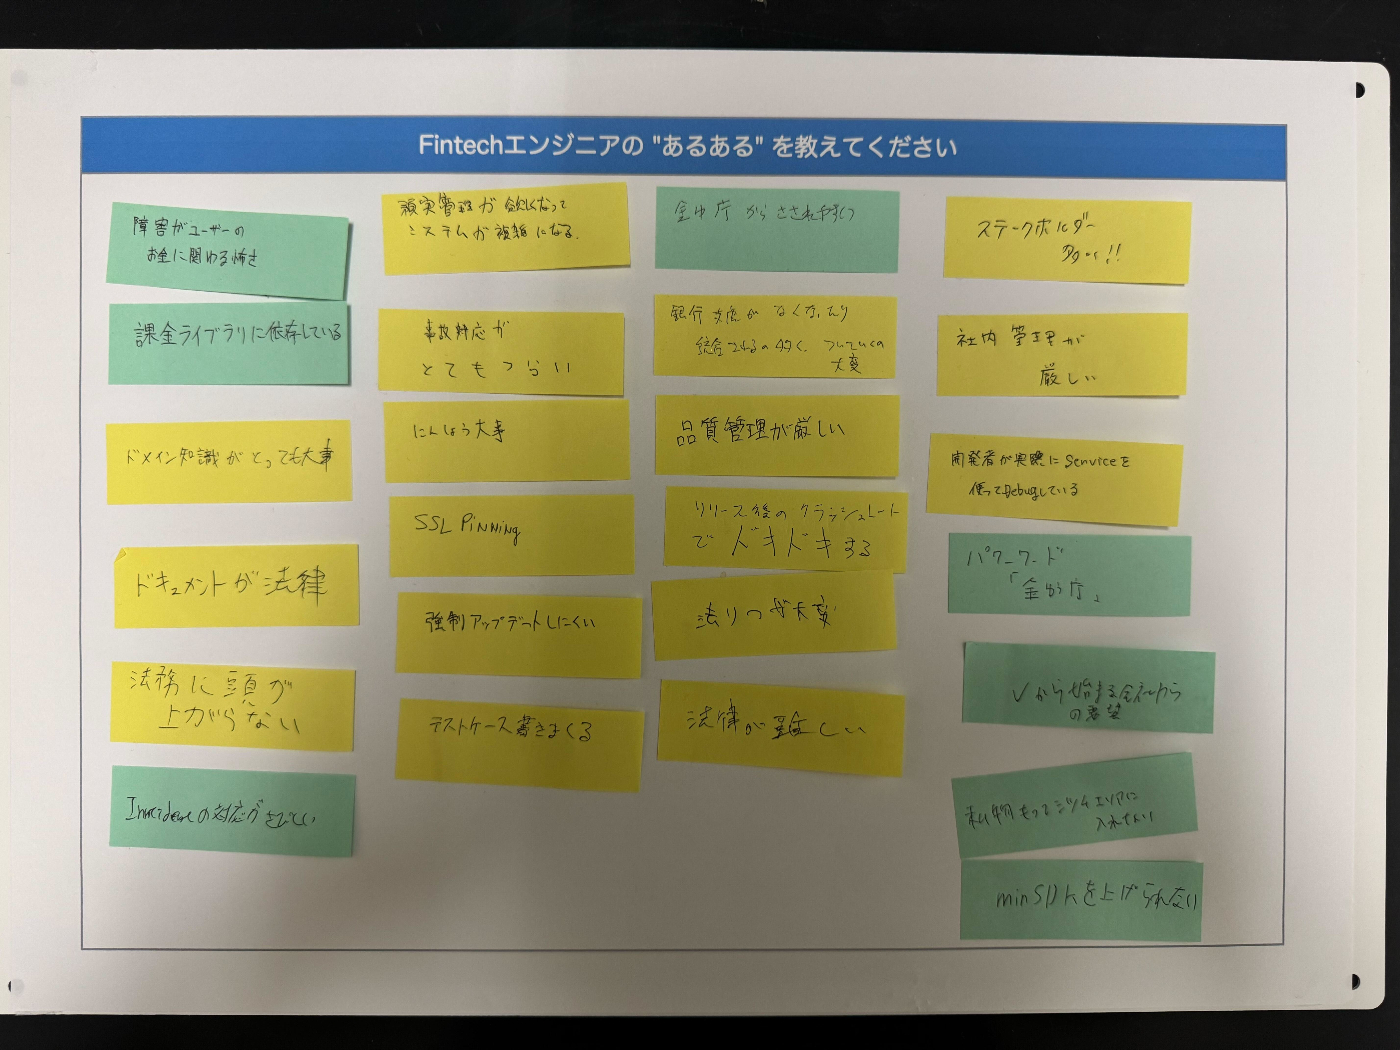 Fintechエンジニアの "あるある" を教えてください
障害がユーザーの
お金に関わる怖さ
課金ライブラリに依存している
ドメイン知識がとっても大事
ドキュメントが法律
法務に頭が
上がらない
の対応がきびしい
管理が欲しくなって
システムが複雑になる.
事故対応が
とてもつらい
にんしょう大事
SSL Pinning
強制アップデートしにくい
テストケース書きまくる
金融庁からさされやすい
銀行支店がなくなったり
統合されるの多く、ついていくの
大変
品質管理が厳しい
リリース後のクラッシュレート
でドキドキする
法りつが大変
法律が難しい
ステークホルダー
多い!!
社内管理が
厳しい
開発者が実際にServiceを
使ってDebugしている
パワーワード
「金融庁」
Vから始まる会社から
の要望
私物もってエリアに
入れない
minSDKを上げられない